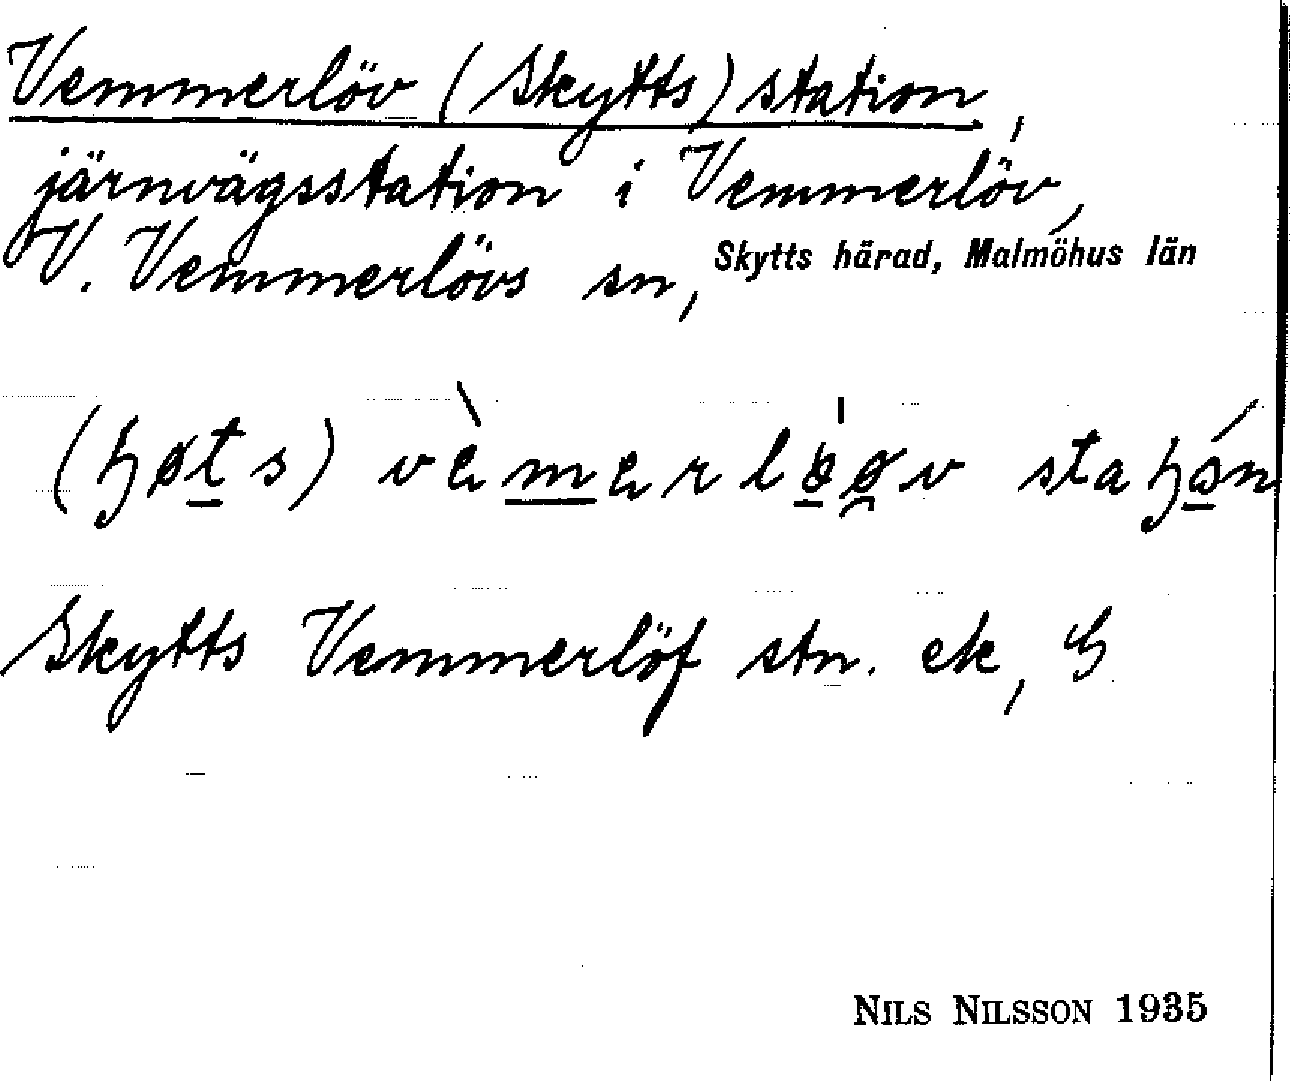 Vemmerlöv (Skytts) station,
järnvägsstation i Vemmerlöv,
V. Vemmerlövs sn, Skytts härad, Malmöhus län
Skytts Vemmerlöf stn. ek, G
NILS NILSSON 1935